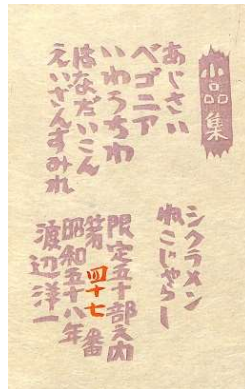 小品集
あじさい
ベゴニア
いわうちわ
はなだいこん
えいざんすみれ
シクラメン
ねこじゃらし
限定五十部之内
第四十七番
昭和五十八年
渡辺洋一